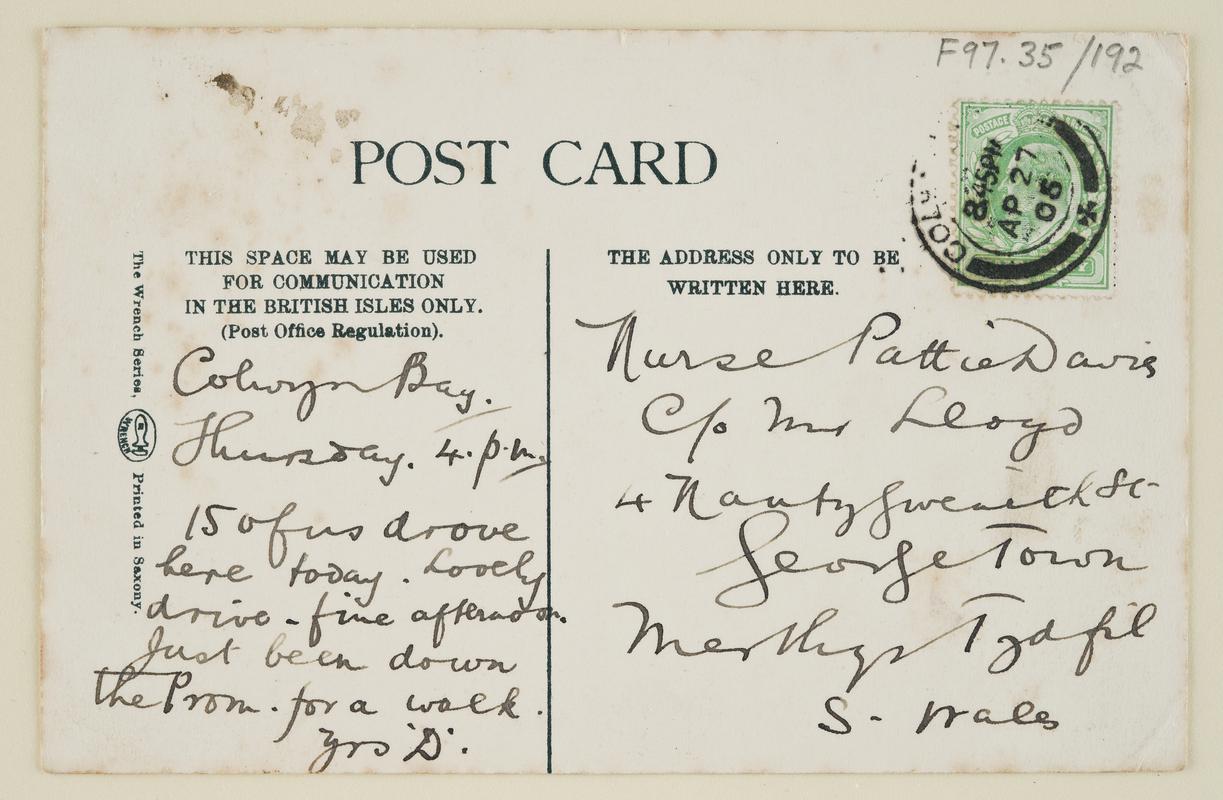 F97.35/192
POST CARD
POSTAGE
COLW
8.45PM
AP 27
05
THIS SPACE MAY BE USED
FOR COMMUNICATION
IN THE BRITISH ISLES ONLY.
(Post Office Regulation).
The Wrench Series,
WRENCH
Printed in Saxony.
Colwyn Bay.
Thursday. 4.p.m.
15 of us drove
here today. Lovely
drive - fine afternoon.
Just been down
the Prom. for a walk.
Yrs 'D'.
THE ADDRESS ONLY TO BE
WRITTEN HERE.
Nurse Pattie Davis
C/o Mr Lloyd
4 Nantygwenith St
George Town
Merthyr Tydfil
S. Wales